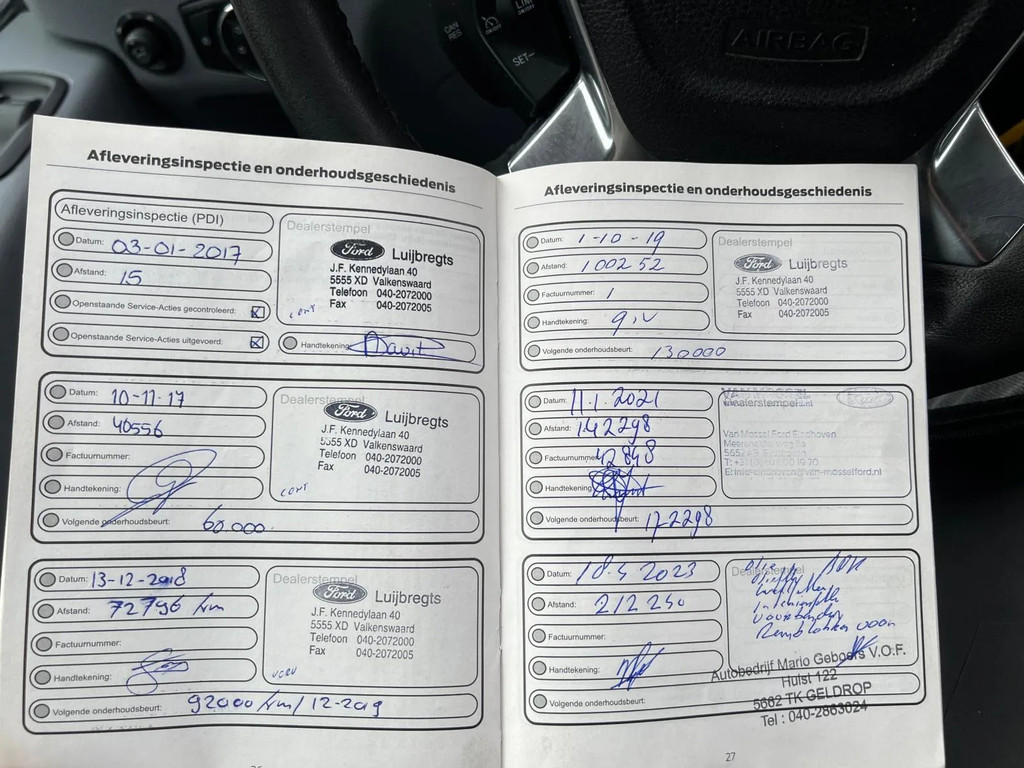 CAN
RES
LIM
SET-
AIRBAG
Afleveringsinspectie en onderhoudsgeschiedenis
Afleveringsinspectie (PDI)
Datum: 03-01-2017
Afstand: 15
Openstaande Service-Acties gecontroleerd:
Openstaande Service-Acties uitgevoerd:
Dealerstempel
Ford Luijbregts
J.F. Kennedylaan 40
5555 XD Valkenswaard
Telefoon 040-2072000
Fax 040-2072005
Handtekening
Datum: 10-11-17
Afstand: 40556
Factuurnummer:
Handtekening:
Volgende onderhoudsbeurt: 60.000
Dealerstempel
Ford Luijbregts
J.F. Kennedylaan 40
5555 XD Valkenswaard
Telefoon 040-2072000
Fax 040-2072005
Datum: 13-12-2018
Afstand: 72796 km
Factuurnummer:
Handtekening:
Volgende onderhoudsbeurt: 92000 km / 12-2019
Dealerstempel
Ford Luijbregts
J.F. Kennedylaan 40
5555 XD Valkenswaard
Telefoon 040-2072000
Fax 040-2072005
Afleveringsinspectie en onderhoudsgeschiedenis
Datum: 1-10-19
Afstand: 100252
Factuurnummer: /
Handtekening:
Volgende onderhoudsbeurt: 130000
Dealerstempel
Ford Luijbregts
J.F. Kennedylaan 40
5555 XD Valkenswaard
Telefoon 040-2072000
Fax 040-2072005
Datum: 11.1.2021
Afstand: 142298
Factuurnummer: 42848
Handtekening
Volgende onderhoudsbeurt: 172298
Dealerstempel
Van Mossel Ford Eindhoven
Datum: 18-5 2023
Afstand: 212250
Factuurnummer:
Handtekening:
Volgende onderhoudsbeurt:
Dealerstempel
Remblokken voor
Autobedrijf Mario Geboers V.O.F.
Hulst 122
5662 TK GELDROP
Tel : 040-2863024
27